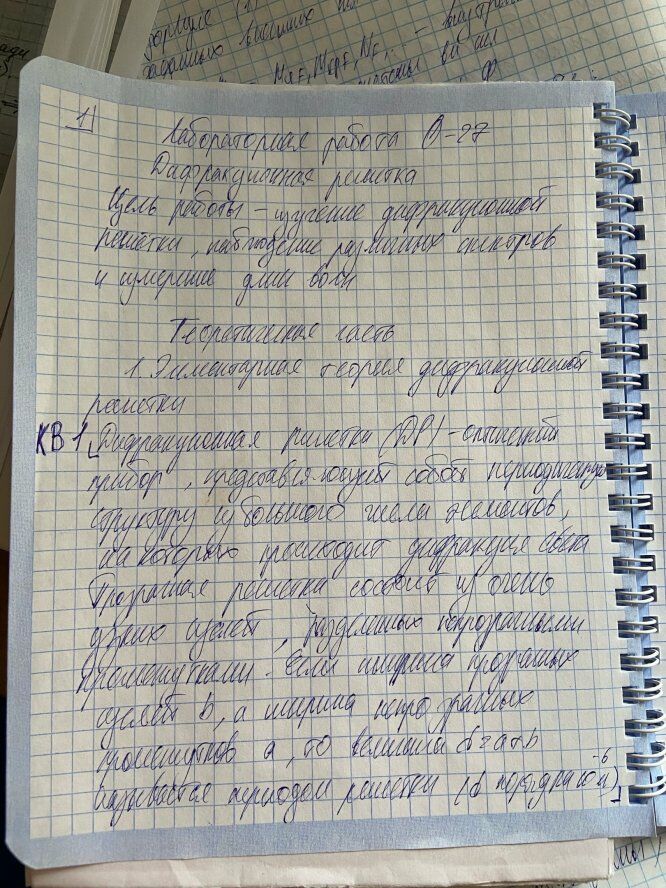 формуле (1)
заданных внешних
M, N,
1
Лабораторная работа О-27
Дифракционная решетка
Цель работы – изучение дифракционной
решётки, наблюдение различных спектров
и измерение длин волн
Теоретическая часть
1. Элементарная теория дифракционной
решетки
КВ 1 Дифракционная решетка (ДР) – оптический
прибор, представляющий собой периодическую
структуру из большого числа элементов,
на которых происходит дифракция света
Прозрачная решетка состоит из очень
узких щелей, разделенных непрозрачными
промежутками. Если ширина прозрачных
щелей b, а ширина непрозрачных
промежутков a, то величина d=a+b
называется периодом решетки (d